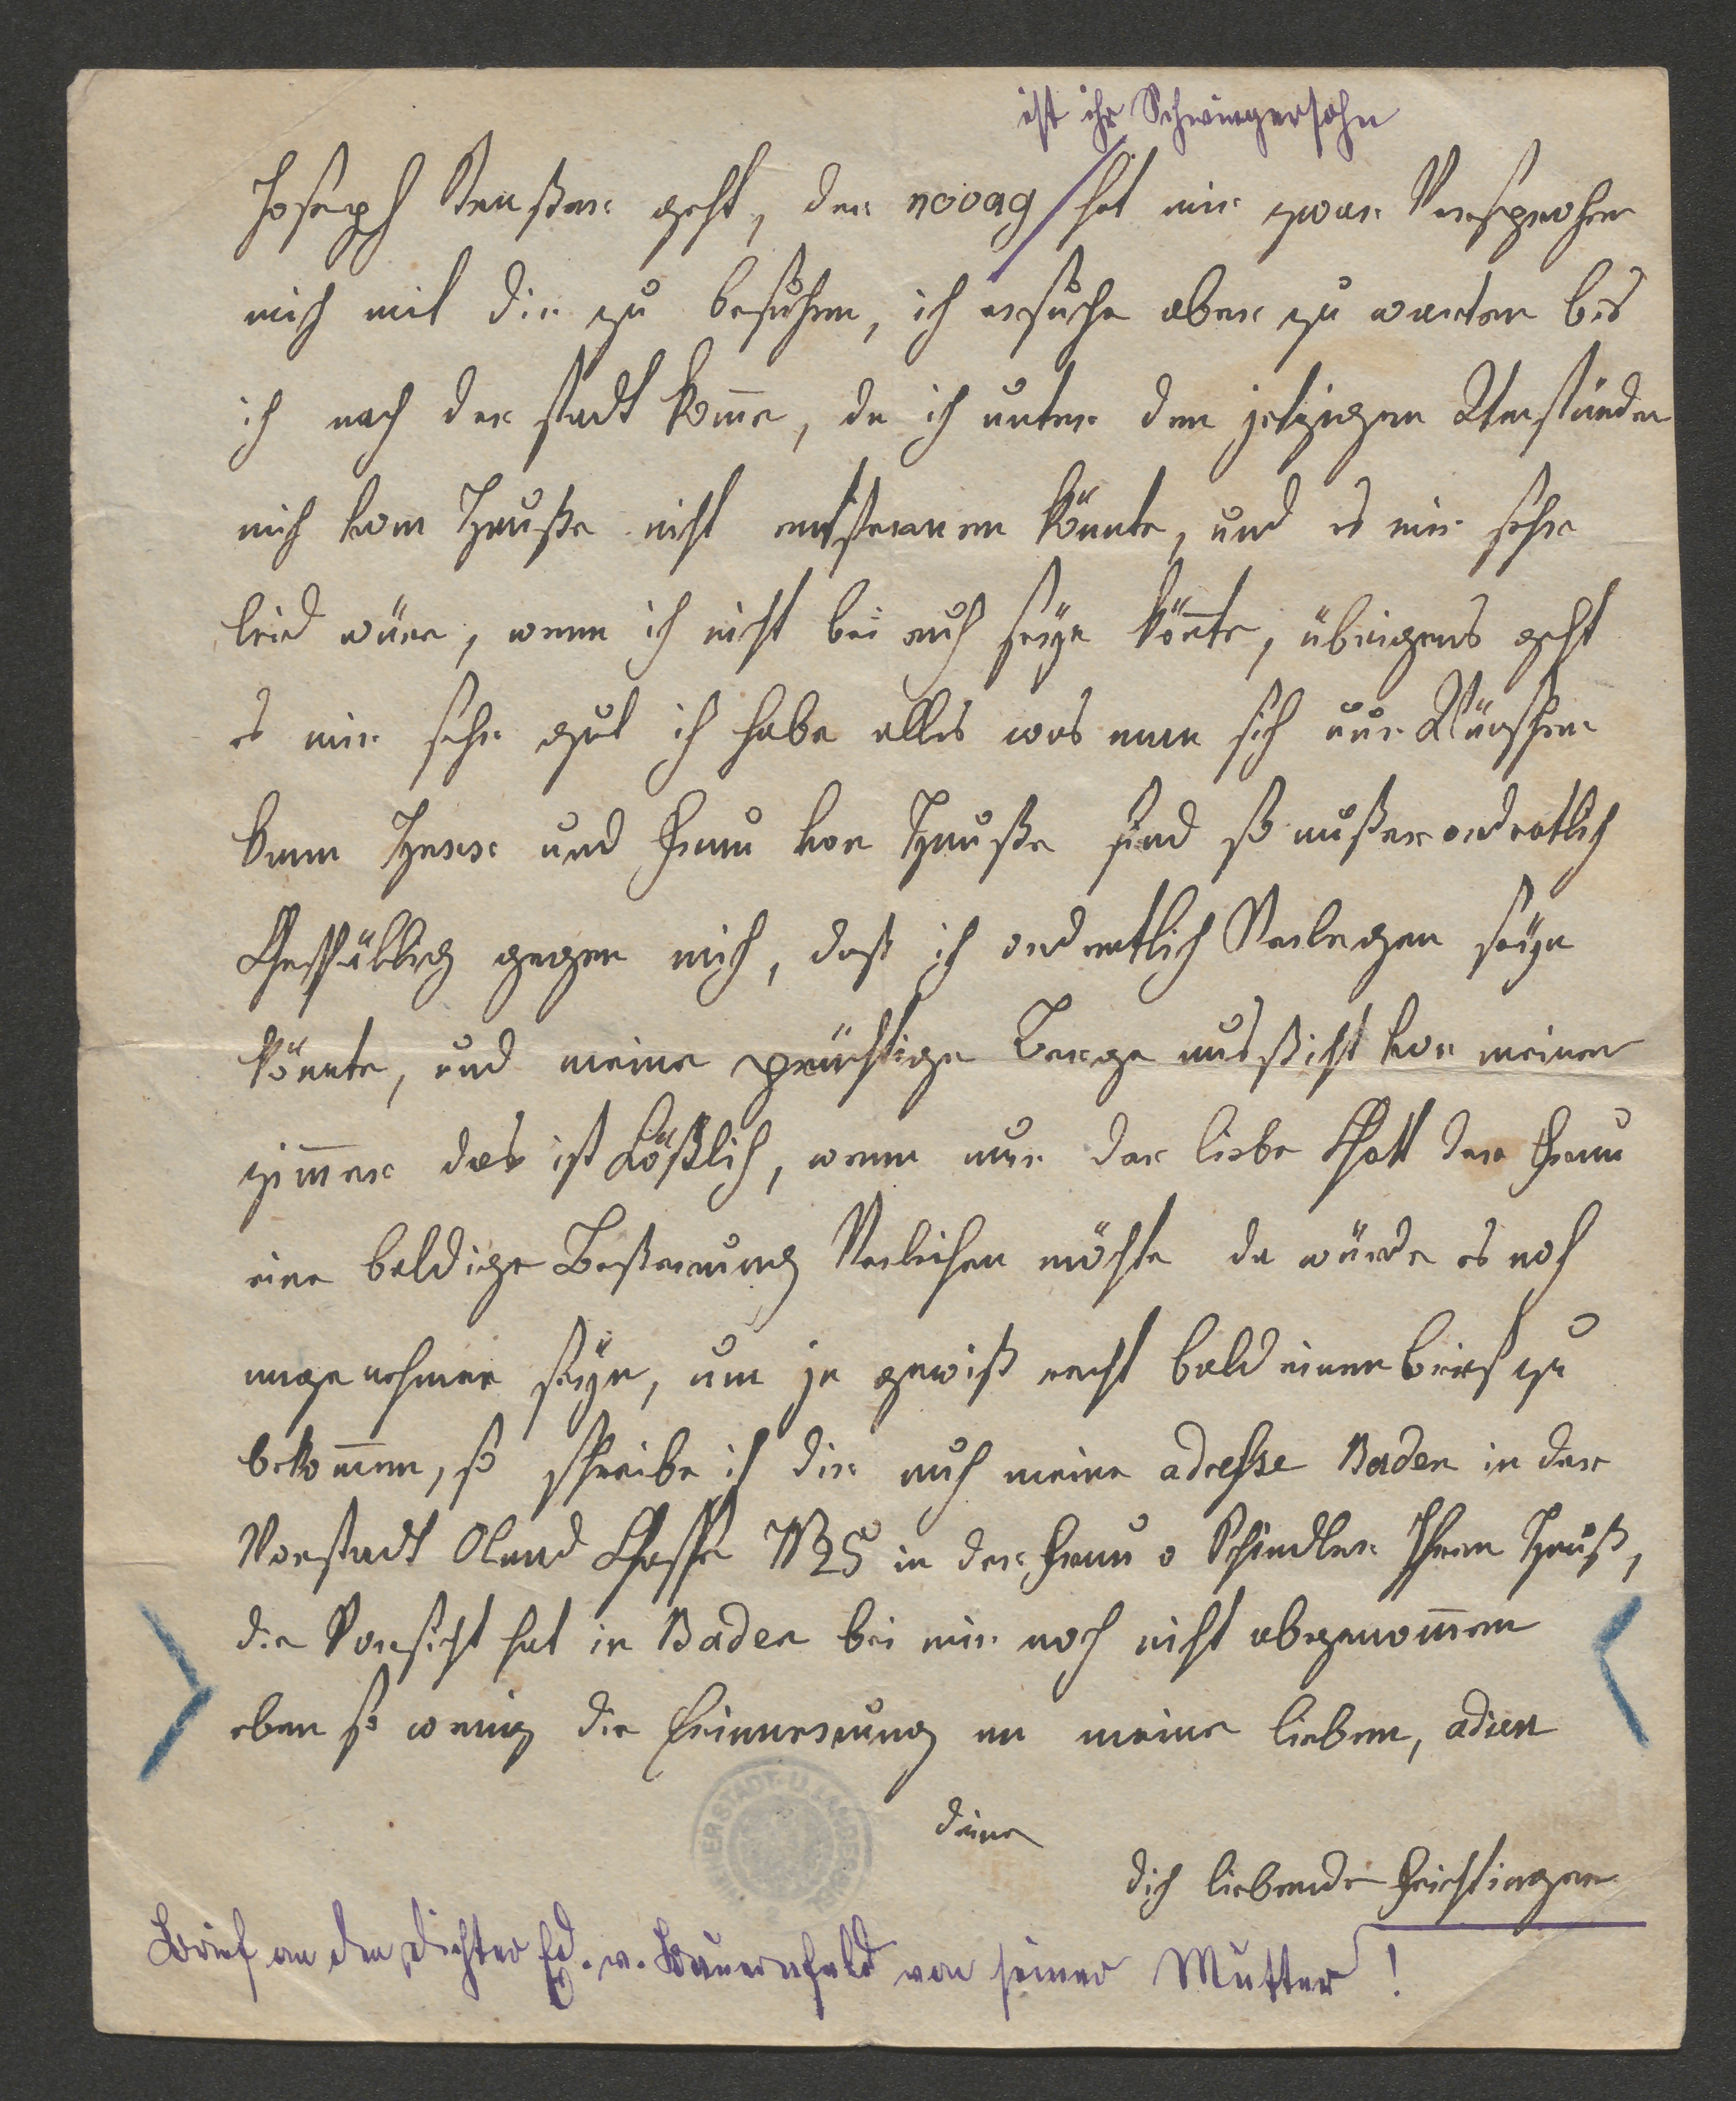 ist ihr Schwiegersohn
Joseph Neußer geht, der novag hat mir zwar Versprochen
mich mit dir zu besuchen, ich ersuche aber zu warten bis
ich nach der stadt kom̄e, da ich unter den jetzigen Umständen
mich vom Hauße nicht entfernen könnte, und es mir sehr
leid wäre, wenn ich nicht bei euch seyn kön̄te, übrigens geht
es mir sehr gut ich habe alles was man sich nur Wünschen
kann Herr und Frau von Hauße sind so außerordentlich
Gefällig gegen mich, daß ich ordentlich Verlegen seyn
könnte, und meine prächtige Berge aussicht von meinen
zim̄er das ist Kößtlich, wenn nur der liebe Gott der Frau
eine baldige Beßerung Verleihen möchte da würde es noch
angenehmer seyn, um ja gewiß recht bald einen brief zu
bekom̄en, so schreibe ich dir auch meine adresse Baden in der
Vorstadt Oland Gasse N 25 in der Frau v Schindler Ihren Hauß,
die Vorsicht hat in Baden bei mir noch nicht abgenom̄en
eben so wenig die Erinnerung an meine lieben, adieu
deine
dich liebende Feichtinger
Brief an den Dichter Ed. v. Bauernfeld von seiner Mutter!